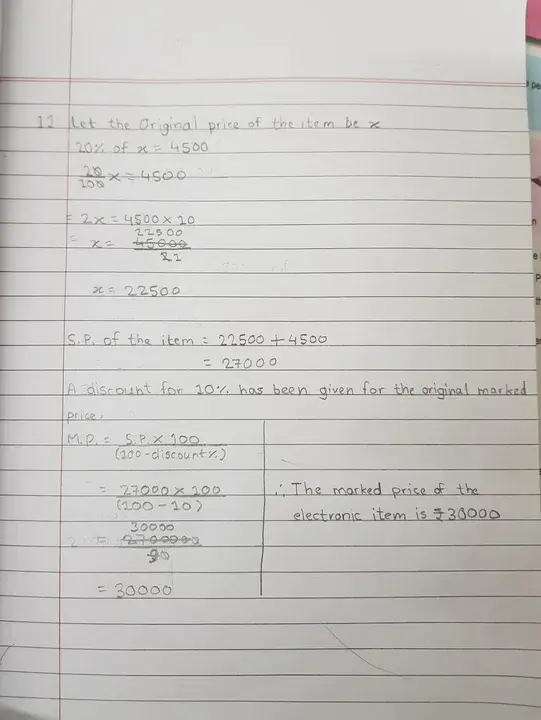 11 Let the Original price of the item be x
20% of x = 4500
20/100 x = 4500
= 2x = 4500 × 10
22500
= x = 45000
21
x = 22500
S.P. of the item = 22500 + 4500
= 27000
A discount for 10% has been given for the original marked
price.
M.P. = S.P. × 100
(100 - discount%)
= 27000 × 100
(100 - 10)
30000
= 2700000
90
= 30000
∴ The marked price of the
electronic item is ₹30000